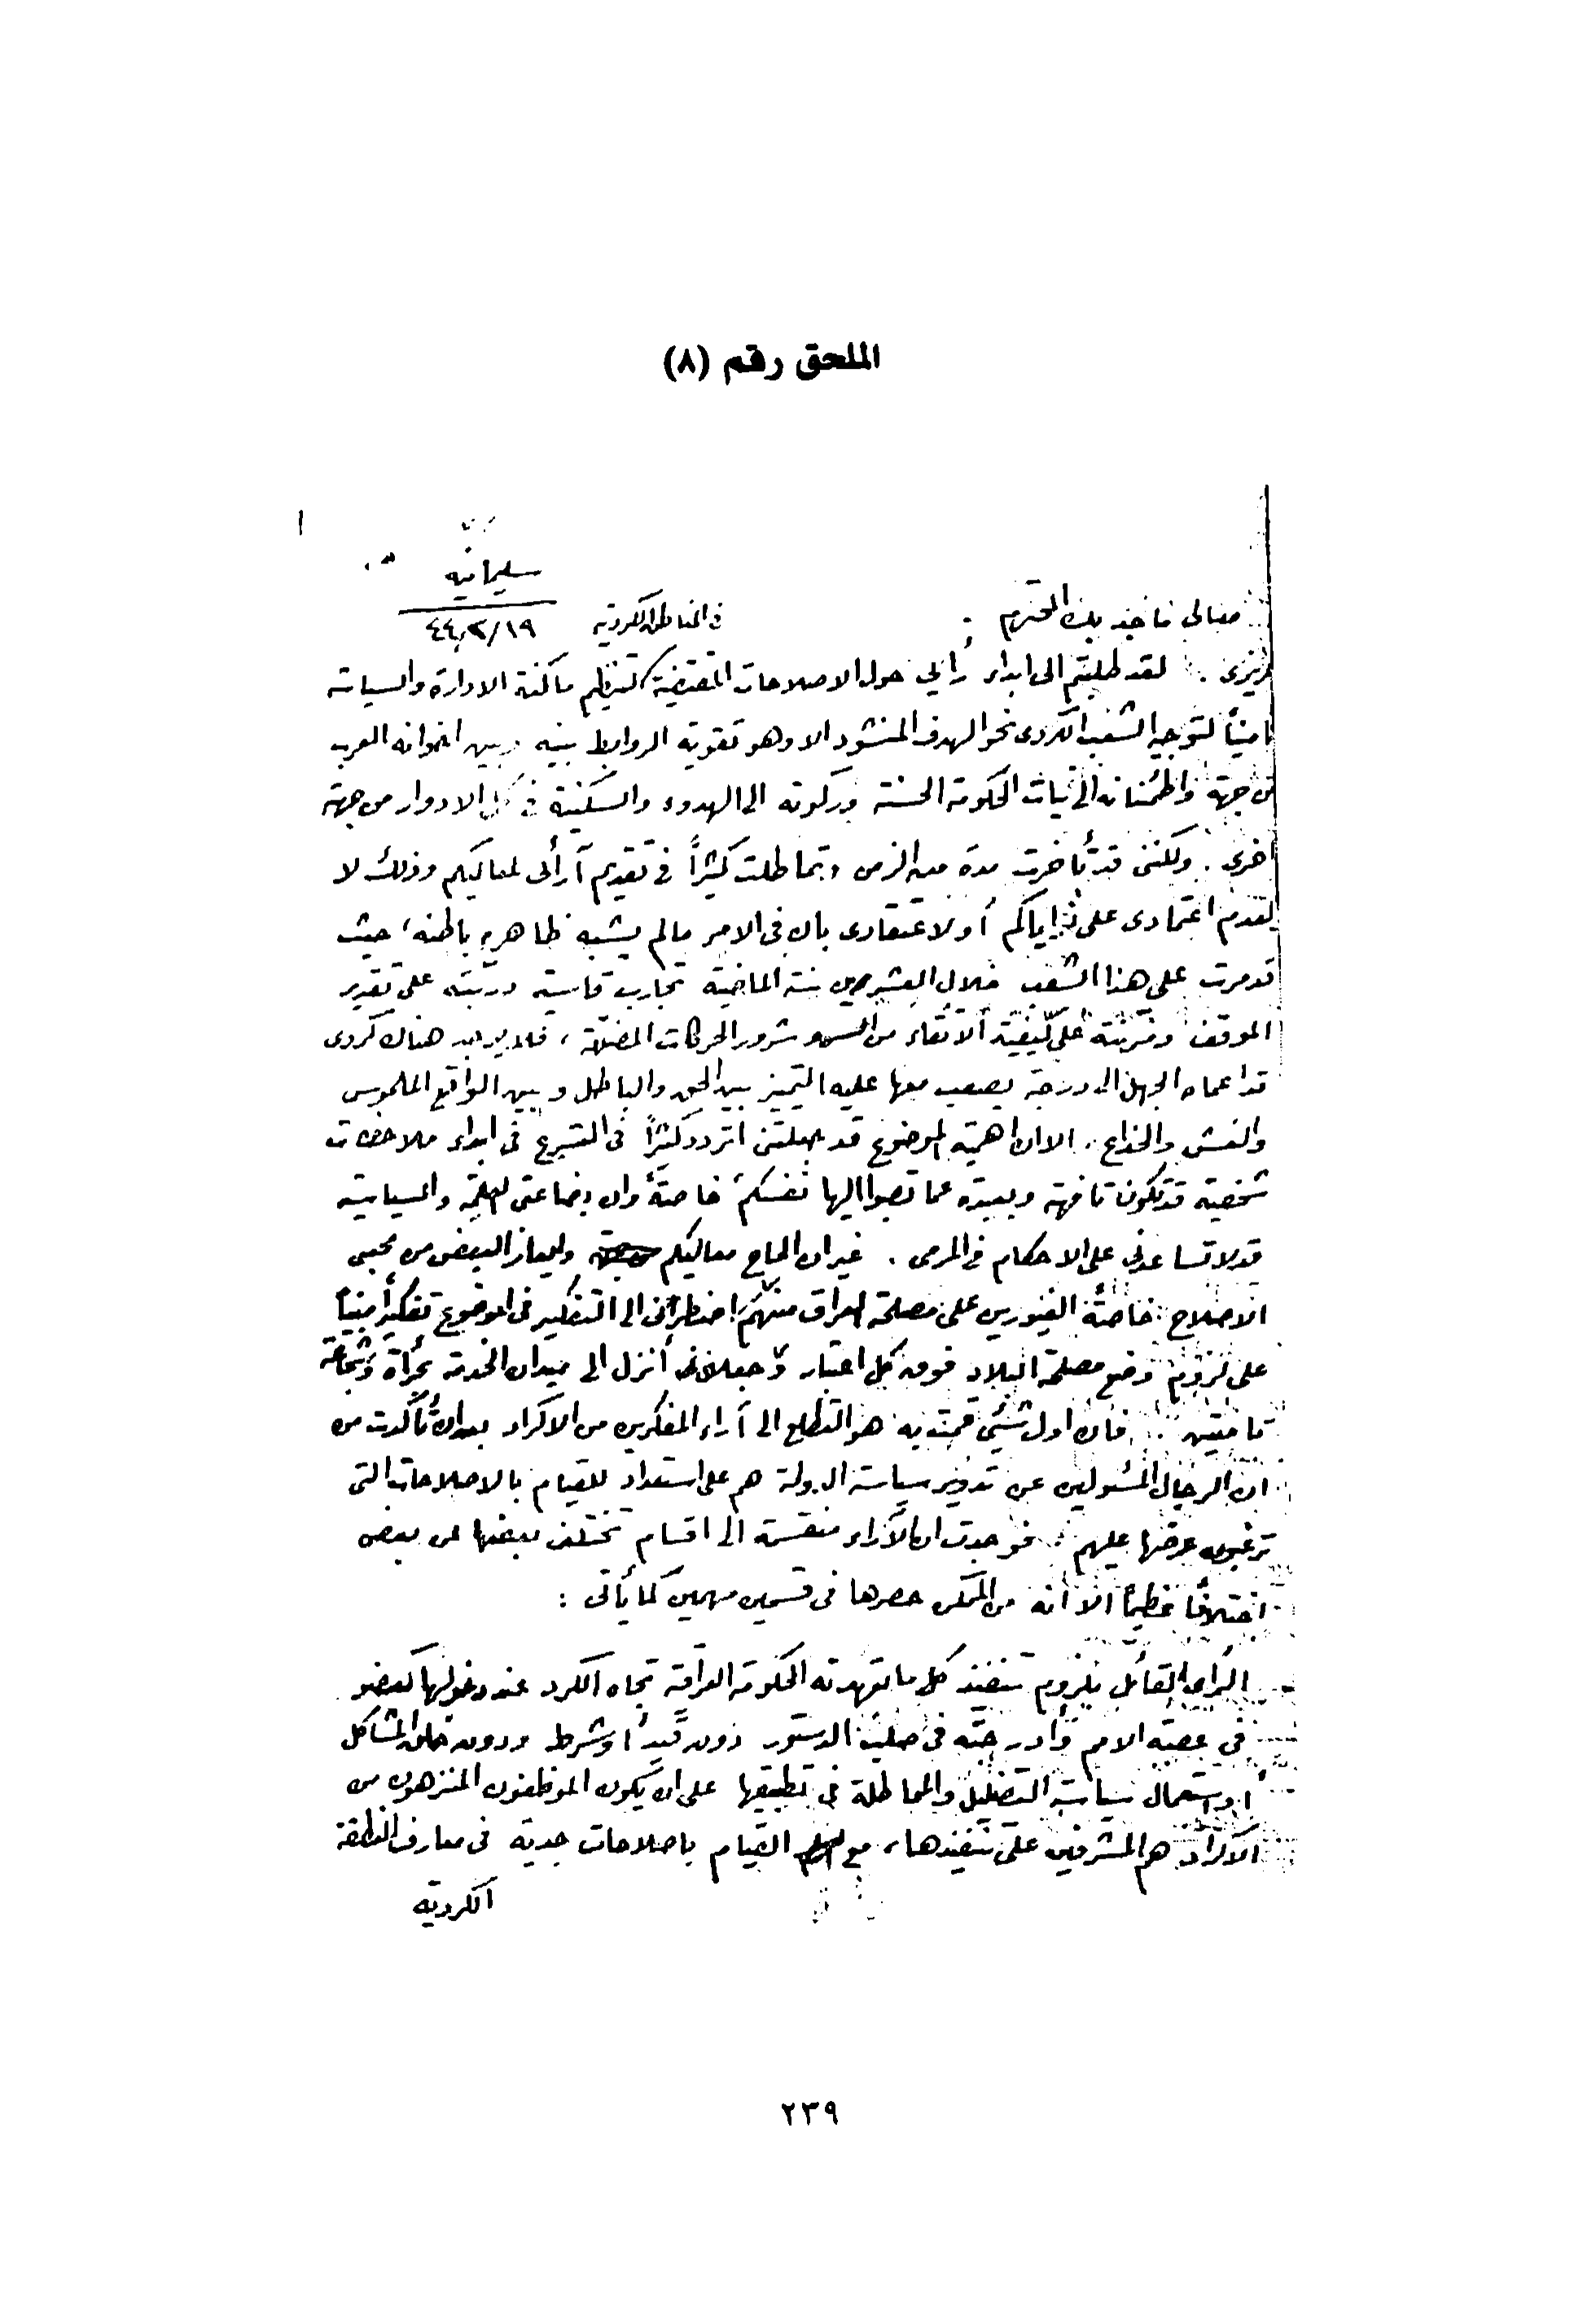 الملحق رقم (٨)
١
سليمانيه
معالى ماجد بك المحترم .
في المناطق الكردية ٤٤/٢/١٩
عزيزى . لقد طلبتم الى ابداء رأيي حول الاصلاحات المقتضية لتنظيم ماكنة الادارة والسياسة
تأميناً لتوجيه الشعب الكردى نحو الهدف المنشود الا وهو تقوية الروابط بينه وبين اخوانه العرب
من جهة واطمئنانه الى نيات الحكومة الحسنة وركونه الى الهدوء والسكينة في كل الادوار من جهة
اخرى . ولكننى قد تأخرت مدة من الزمن وتماطلت كثيراً في تقديم آرائى لمعاليكم وذلك لا
لعدم اعتمادى على نواياكم أو لاعتقادى بان فى الامر مالم يشبه ظاهره باطنه ، حيث
قد مرت على هذا الشعب خلال العشرين سنة الماضية تجارب قاسية دربته على تقدير
الموقف ومرنته على كيفية الاتقاء من شرور الحركات المضللة ، فلا يوجد هناك كردى
قد اعماه الجهل الى درجة يصعب معها عليه التميز بين الحق والباطل وبين الواقع الملموس
والغش والخداع . الا ان اهمية الموضوع قد جعلتنى اتردد كثيراً فى التسرع فى ابداء ملاحظات
شخصية قد تكون تافهة وبعيدة عما تصبوا اليها نفسكم خاصة وان بضاعتى العلمية والسياسية
قد لا تساعدنى على الاحكام في المرمى . غير ان الحاح معاليكم وايعاز البعض من محبى
الاصلاح خاصة الغيورين على مصلحة العراق منهم اضطرانى الى التفكير فى الموضوع تفكيراً مبنياً
على لزوم وضع مصلحة البلاد فوق كل اعتبار وجعلانى أنزل الى ميدان الخدمة بجرأة وشجاعة
تامتين . فان اول شيئ قمت به هو التطلع الى آراء المفكرين من الاكراد بعد ان تأكدت من
ان الرجال المسئولين عن تدوير سياسة الدولة هم على استعداد للقيام بالاصلاحات التى
ترغبون عرضها عليهم . فوجدت ان الآراء منقسمة الى اقسام تختلف بعضها عن بعض
اختلافاً عظيماً الا أنه من الممكن حصرها فى قسمين مهمين كما يأتى :
الرأى القائل بلزوم تنفيذ كل ما تعهدته الحكومة العراقية تجاه الكرد عند دخولها كعضو
فى عصبة الامم وأدرجته فى صلب الدستور دون قيد أو شرط ودون خلق المشاكل
أو استعمال سياسة التضليل والمماطلة في تطبيقها على ان يكون الموظفون المنزهون من
الاكراد هم المشرفين على تنفيذها ، مع القيام باصلاحات جدية فى معارف المنطقة
الكردية
٢٣٩